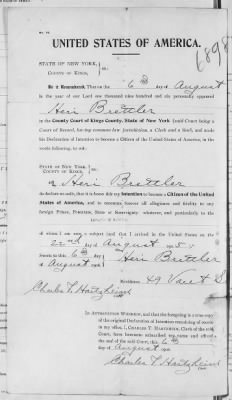 UNITED STATES OF AMERICA.
6898
STATE OF NEW YORK,
COUNTY OF KINGS, ss:
Be it Remembered, That on the 6th day of August
in the year of our Lord one thousand nine hundred and six personally appeared
Heri Brettler
in the County Court of Kings County, State of New York (said Court being a
Court of Record, having common law jurisdiction, a Clerk and a Seal), and made
his Declaration of Intention to become a Citizen of the United States of America, in
the words following, to wit:
STATE OF NEW YORK,
COUNTY OF KINGS, ss:
I, Heri Brettler
do declare on oath, that it is bona fide my Intention to become a Citizen of the United
States of America, and to renounce forever all allegiance and fidelity to any
foreign Prince, Potentate, State or Sovereignty whatever, and particularly to the
of whom I am now a subject (and that I arrived in the United States on the
22nd day of August
Sworn to this 6th day of
August
Heri Brettler
Residence: 49
Charles T. Hartzheim
Clerk
IN ATTESTATION WHEREOF, and that the foregoing is a true copy
of the original Declaration of Intention remaining of record
in my office, I, CHARLES T. HARTZHEIM, Clerk of the said
Court, have hereunto subscribed my name and affixed
the seal of the said Court, this 6th
day of August
Charles T. Hartzheim
Clerk